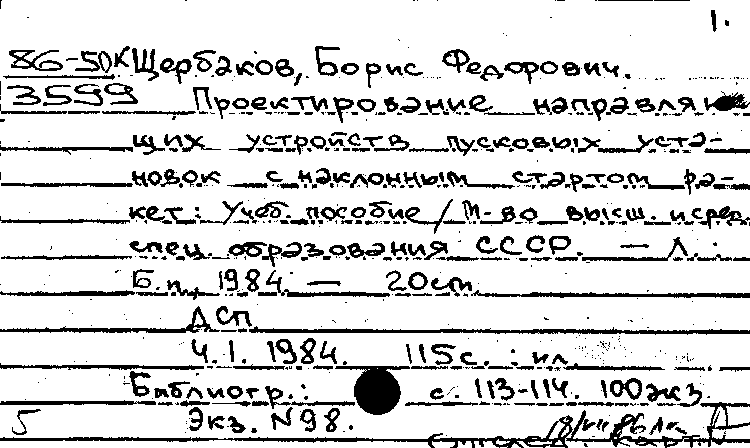 1.
86-50к Щербаков, Борис Федорович.
3599 Проектирование направляю
щих устройств пусковых уста-
новок с наклонным стартом ра-
кет: Учеб. пособие / М-во высш. и сред.
спец. образования СССР. — Л. :
Б.и., 1984. — 20см.
ДСП.
Ч. 1. 1984. 115с. : ил.
Библиогр.: с. 113-114. 100экз.
5 Экз. N98.